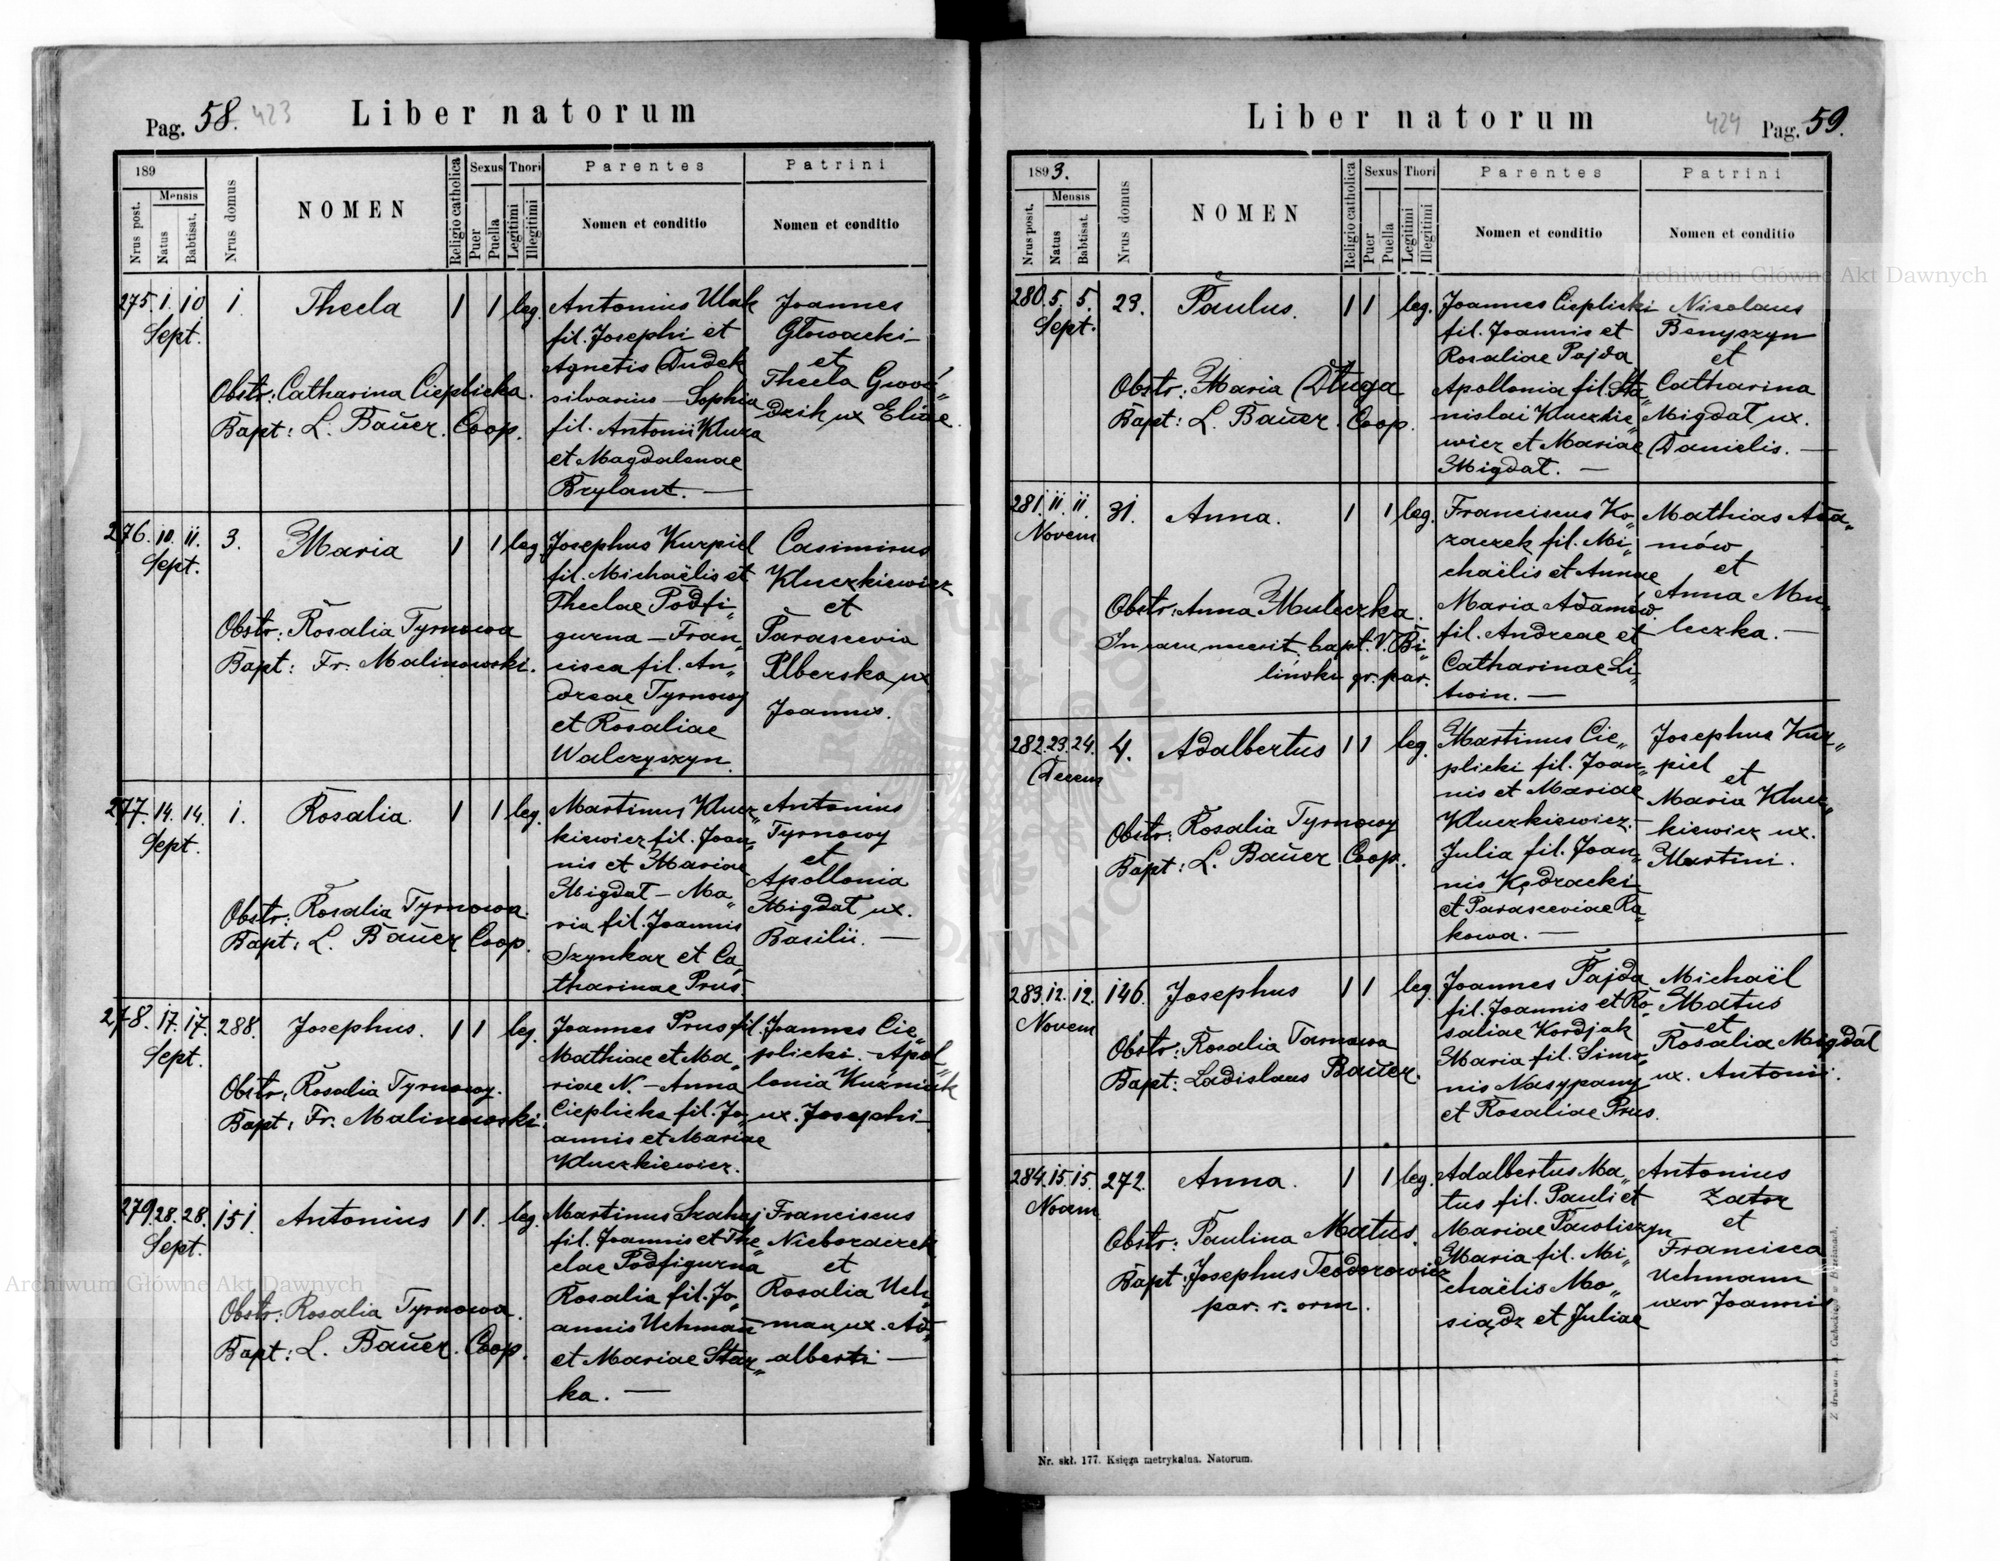 Pag. 58. 423 Liber natorum
189
Mensis
Nrus post.
Natus
Babtisat.
Nrus domus
NOMEN
Religio catholica
Sexus
Puer
Puella
Thori
Legitimi
Illegitimi
Parentes
Nomen et conditio
Patrini
Nomen et conditio
275. 1. 10 1. Thecla 1 1 leg.
Sept.
Obstr: Catharina Cieplicka.
Bapt: L. Bauer. Coop.
Antonius Ulak
fil. Josephi et
Agnetis Dudek
silvarius — Sophia
fil. Antonii Kluza
et Magdalenae
Brylant. —
Joannes
Głowacki
et
Thecla Gwoź„
dzik ux Eliae.
276. 10. 11. 3. Maria 1 1 leg.
Sept.
Obstr: Rosalia Tyrnowa
Bapt: Fr. Malinowski.
Josephus Kurpiel
fil. Michaëlis et
Theclae Podfi„
gurna — Fran„
cisca fil. An„
dreae Tyrnowy
et Rosaliae
Walczyszyn.
Casimirus
Kluczkiewicz
et
Parascevia
Elberska ux
Joannis.
277. 14. 14. 1. Rosalia. 1 1 leg.
Sept.
Obstr: Rosalia Tyrnowa
Bapt: L. Bauer Coop.
Martinus Klucz„
kiewicz fil. Joan„
nis et Mariae
Migdat — Ma„
ria fil. Joannis
Szynkar et Ca„
tharinae Prus.
Antonius
Tyrnowy
et
Apollonia
Migdat ux.
Basilii. —
278. 17. 17. 288. Josephus. 1 1 leg.
Sept.
Obstr: Rosalia Tyrnowy.
Bapt: Fr. Malinowski.
Joannes Prus fil.
Mathiae et Ma„
riae N. — Anna
Cieplicka fil. Jo„
annis et Mariae
Kluczkiewicz.
Joannes Cie„
plicki. — Apol„
lonia Kuźniak
ux. Josephi —
279. 28. 28. 151. Antonius 1 1. leg.
Sept.
Obstr: Rosalia Tyrnowa.
Bapt: L. Bauer. Coop.
Martinus Szahaj
fil. Joannis et The„
clae Podfigurna
Rosalia fil. Jo„
annis Uchman
et Mariae Star„
ka. —
Franciscus
Nieborączek
et
Rosalia Uch„
man ux. Ad„
alberti —
Liber natorum 424 Pag. 59.
1893.
Mensis
Nrus posit.
Natus
Babtisat.
Nrus domus
NOMEN
Religio catholica
Sexus
Puer
Puella
Thori
Legitimi
Illegitimi
Parentes
Nomen et conditio
Patrini
Nomen et conditio
280. 5. 5. 23. Paulus. 1 1 leg.
Sept.
Obstr: Maria Długa
Bapt: L. Bauer. Coop.
Joannes Cieplicki
fil. Joannis et
Rosaliae Pajda
Apollonia fil. Sta„
nislai Kluczkie„
wicz et Mariae
Migdat. —
Nicolaus
Benyszyn
et
Catharina
Migdat ux.
Danielis. —
281. 11. 11. 31. Anna. 1 1 leg.
Novem
Obstr: Anna Muleczka.
In casu necesit. bapt. V. Bi„
liński gr. par.
Franciscus Ko„
zaczek fil. Mi„
chaëlis et Annae
Maria Adamów
fil. Andreae et
Catharinae Li„
twin. —
Mathias Ada„
mów
et
Anna Mu„
leczka. —
282. 23. 24. 4. Adalbertus 1 1 leg.
Decem
Obstr: Rosalia Tyrnowy
Bapt: L. Bauer Coop.
Martinus Cie„
plicki fil. Joan„
nis et Mariae
Kluczkiewicz. —
Julia fil. Joan„
nis Kędracki
et Parasceviae Ra„
kowa. —
Josephus Kur„
piel
et
Maria Klucz„
kiewicz ux.
Martini.
283. 12. 12. 146. Josephus 1 1 leg.
Novem
Obstr: Rosalia Tarnowa
Bapt: Ladislaus Bauer.
Joannes Pajda
fil. Joannis et Ro„
saliae Kordjak
Maria fil. Simo„
nis Nasypany
et Rosaliae Prus.
Michaël
Matus
et
Rosalia Migdał
ux. Antonii.
284. 15. 15. 272. Anna. 1 1 leg.
Novem
Obstr: Paulina Matus.
Bapt: Josephus Teodorowicz
par. r. orm.
Adalbertus Ma„
tus fil. Pauli et
Mariae Pawliszyn
Maria fil. Mi„
chaëlis Mo„
siądz et Juliae
Antonius
Zator
et
Francisca
Uchmann
uxor Joannis
Nr. skł. 177. Księga metrykalna. Natorum.
Archiwum Główne Akt Dawnych
Archiwum Główne Akt Dawnych